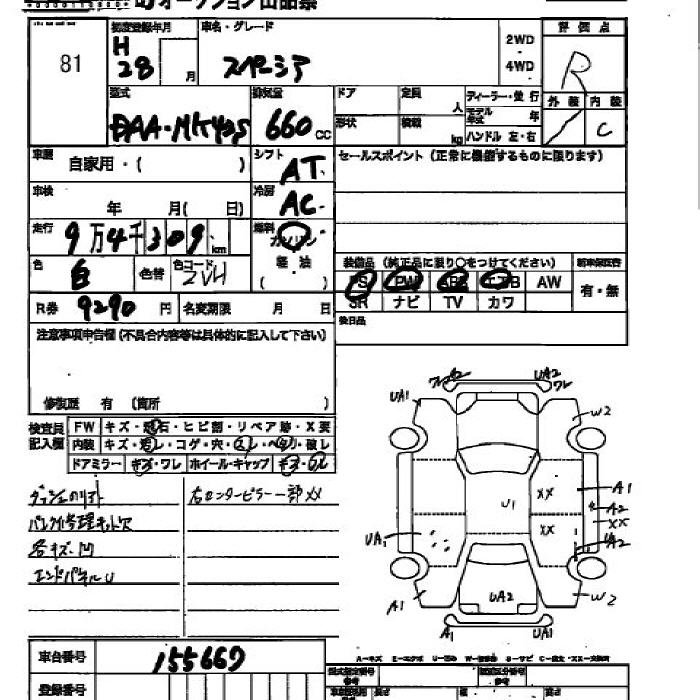 オークション出品票
81
初度登録年月
H
28
月
車名・グレード
スペーシア
2WD
・
4WD
評価点
R
外装
内装
C
型式
DAA-MK42S
排気量
660 cc
ドア
定員
人
ディーラー・並行
モデル年式
年
形状
積載
kg
ハンドル 左・右
車歴
自家用・(        )
シフト
AT
セールスポイント(正常に機能するものに限ります)
車検
年 月( 日)
冷房
AC
走行
9万4千309km
燃料
ガソリン
軽油
(    )
色
白
色替
色コード
ZVH
装備品(純正品に限り○をつけてください)
新車保証書
PS PW ABS エアB AW
有・無
SR ナビ TV カワ
R券
9290円
名変期限 月 日
後日品
注意事項申告欄(不具合内容等は具体的に記入して下さい)
修復歴 有 (箇所        )
検査員
記入欄
FW キズ・飛石・ヒビ割・リペア跡・X要
内装 キズ・汚レ・コゲ・穴・スレ・ハガレ・破レ
ドアミラー キズ・ワレ ホイール・キャップ キズ・ワレ
右センターピラー一部XX
パンク修理キット欠
各キズ凹
エンドパネルU
ワレ
UA2
ワレ
UA1
W2
U1
XX
A1
A2
XX
XX
UA1
UA2
UA2
A1
W2
A1
UA1
車台番号
155667
登録番号